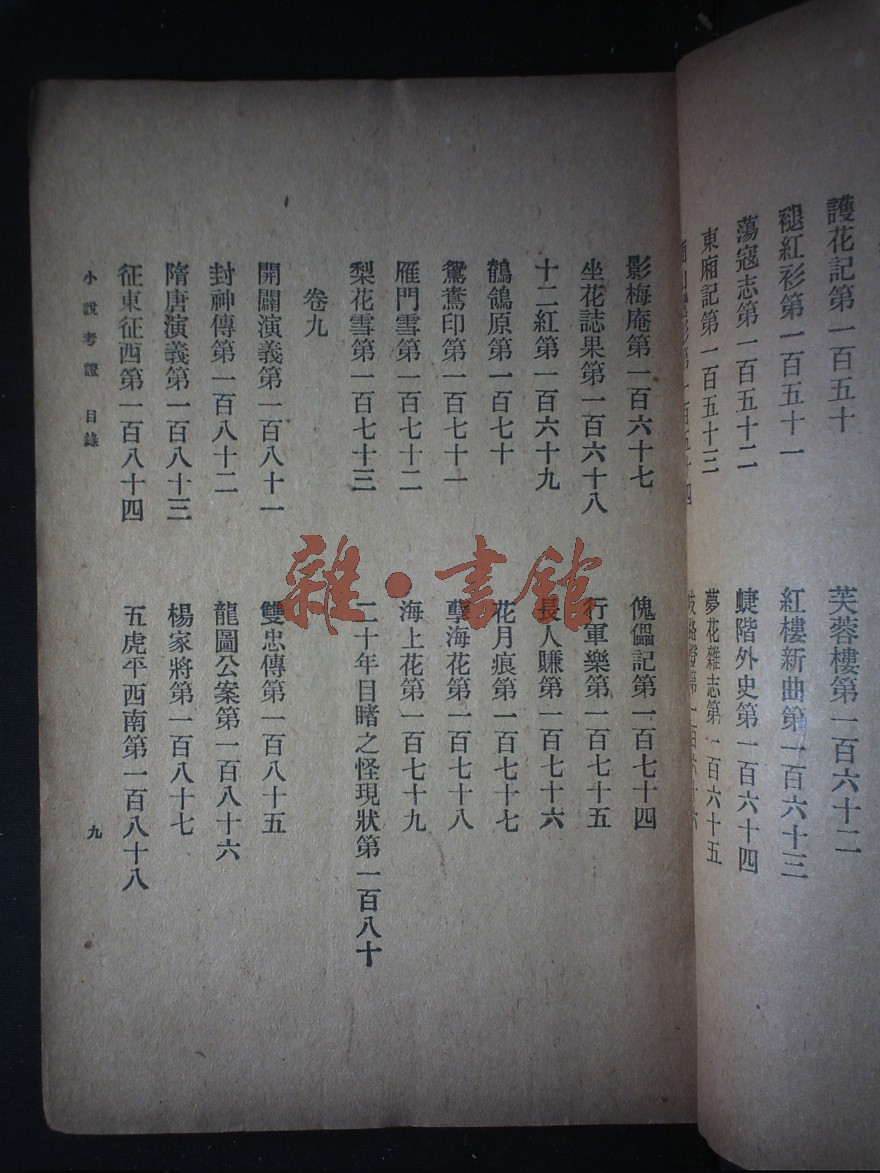 護花記第一百五十
褪紅衫第一百五十一
蕩寇志第一百五十二
東廂記第一百五十三
第一百五十四
芙蓉樓第一百六十二
紅樓新曲第一百六十三
蜨階外史第一百六十四
夢花雜志第一百六十五
歧路燈第一百六十六
影梅庵第一百六十七
坐花誌果第一百六十八
十二紅第一百六十九
鶺鴒原第一百七十
鴛鴦印第一百七十一
雁門雪第一百七十二
梨花雪第一百七十三
傀儡記第一百七十四
行軍樂第一百七十五
長人賺第一百七十六
花月痕第一百七十七
孽海花第一百七十八
海上花第一百七十九
二十年目睹之怪現狀第一百八十
卷九
開闢演義第一百八十一
封神傳第一百八十二
隋唐演義第一百八十三
征東征西第一百八十四
雙忠傳第一百八十五
龍圖公案第一百八十六
楊家將第一百八十七
五虎平西南第一百八十八
小說考證 目錄
九
雜·書館